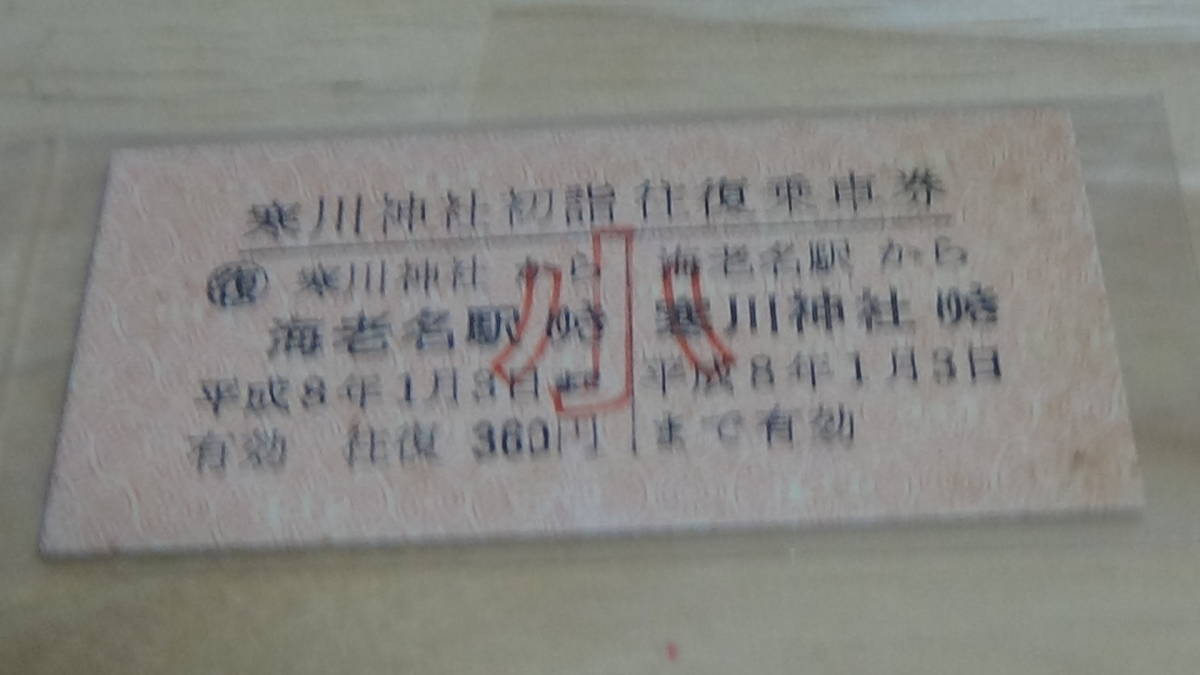 寒川神社初詣往復乗車券
復 寒川神社 から
海老名駅ゆき
平成8年1月3日まで
有効 往復 360円
海老名駅 から
寒川神社ゆき
平成8年1月3日
まで有効
小